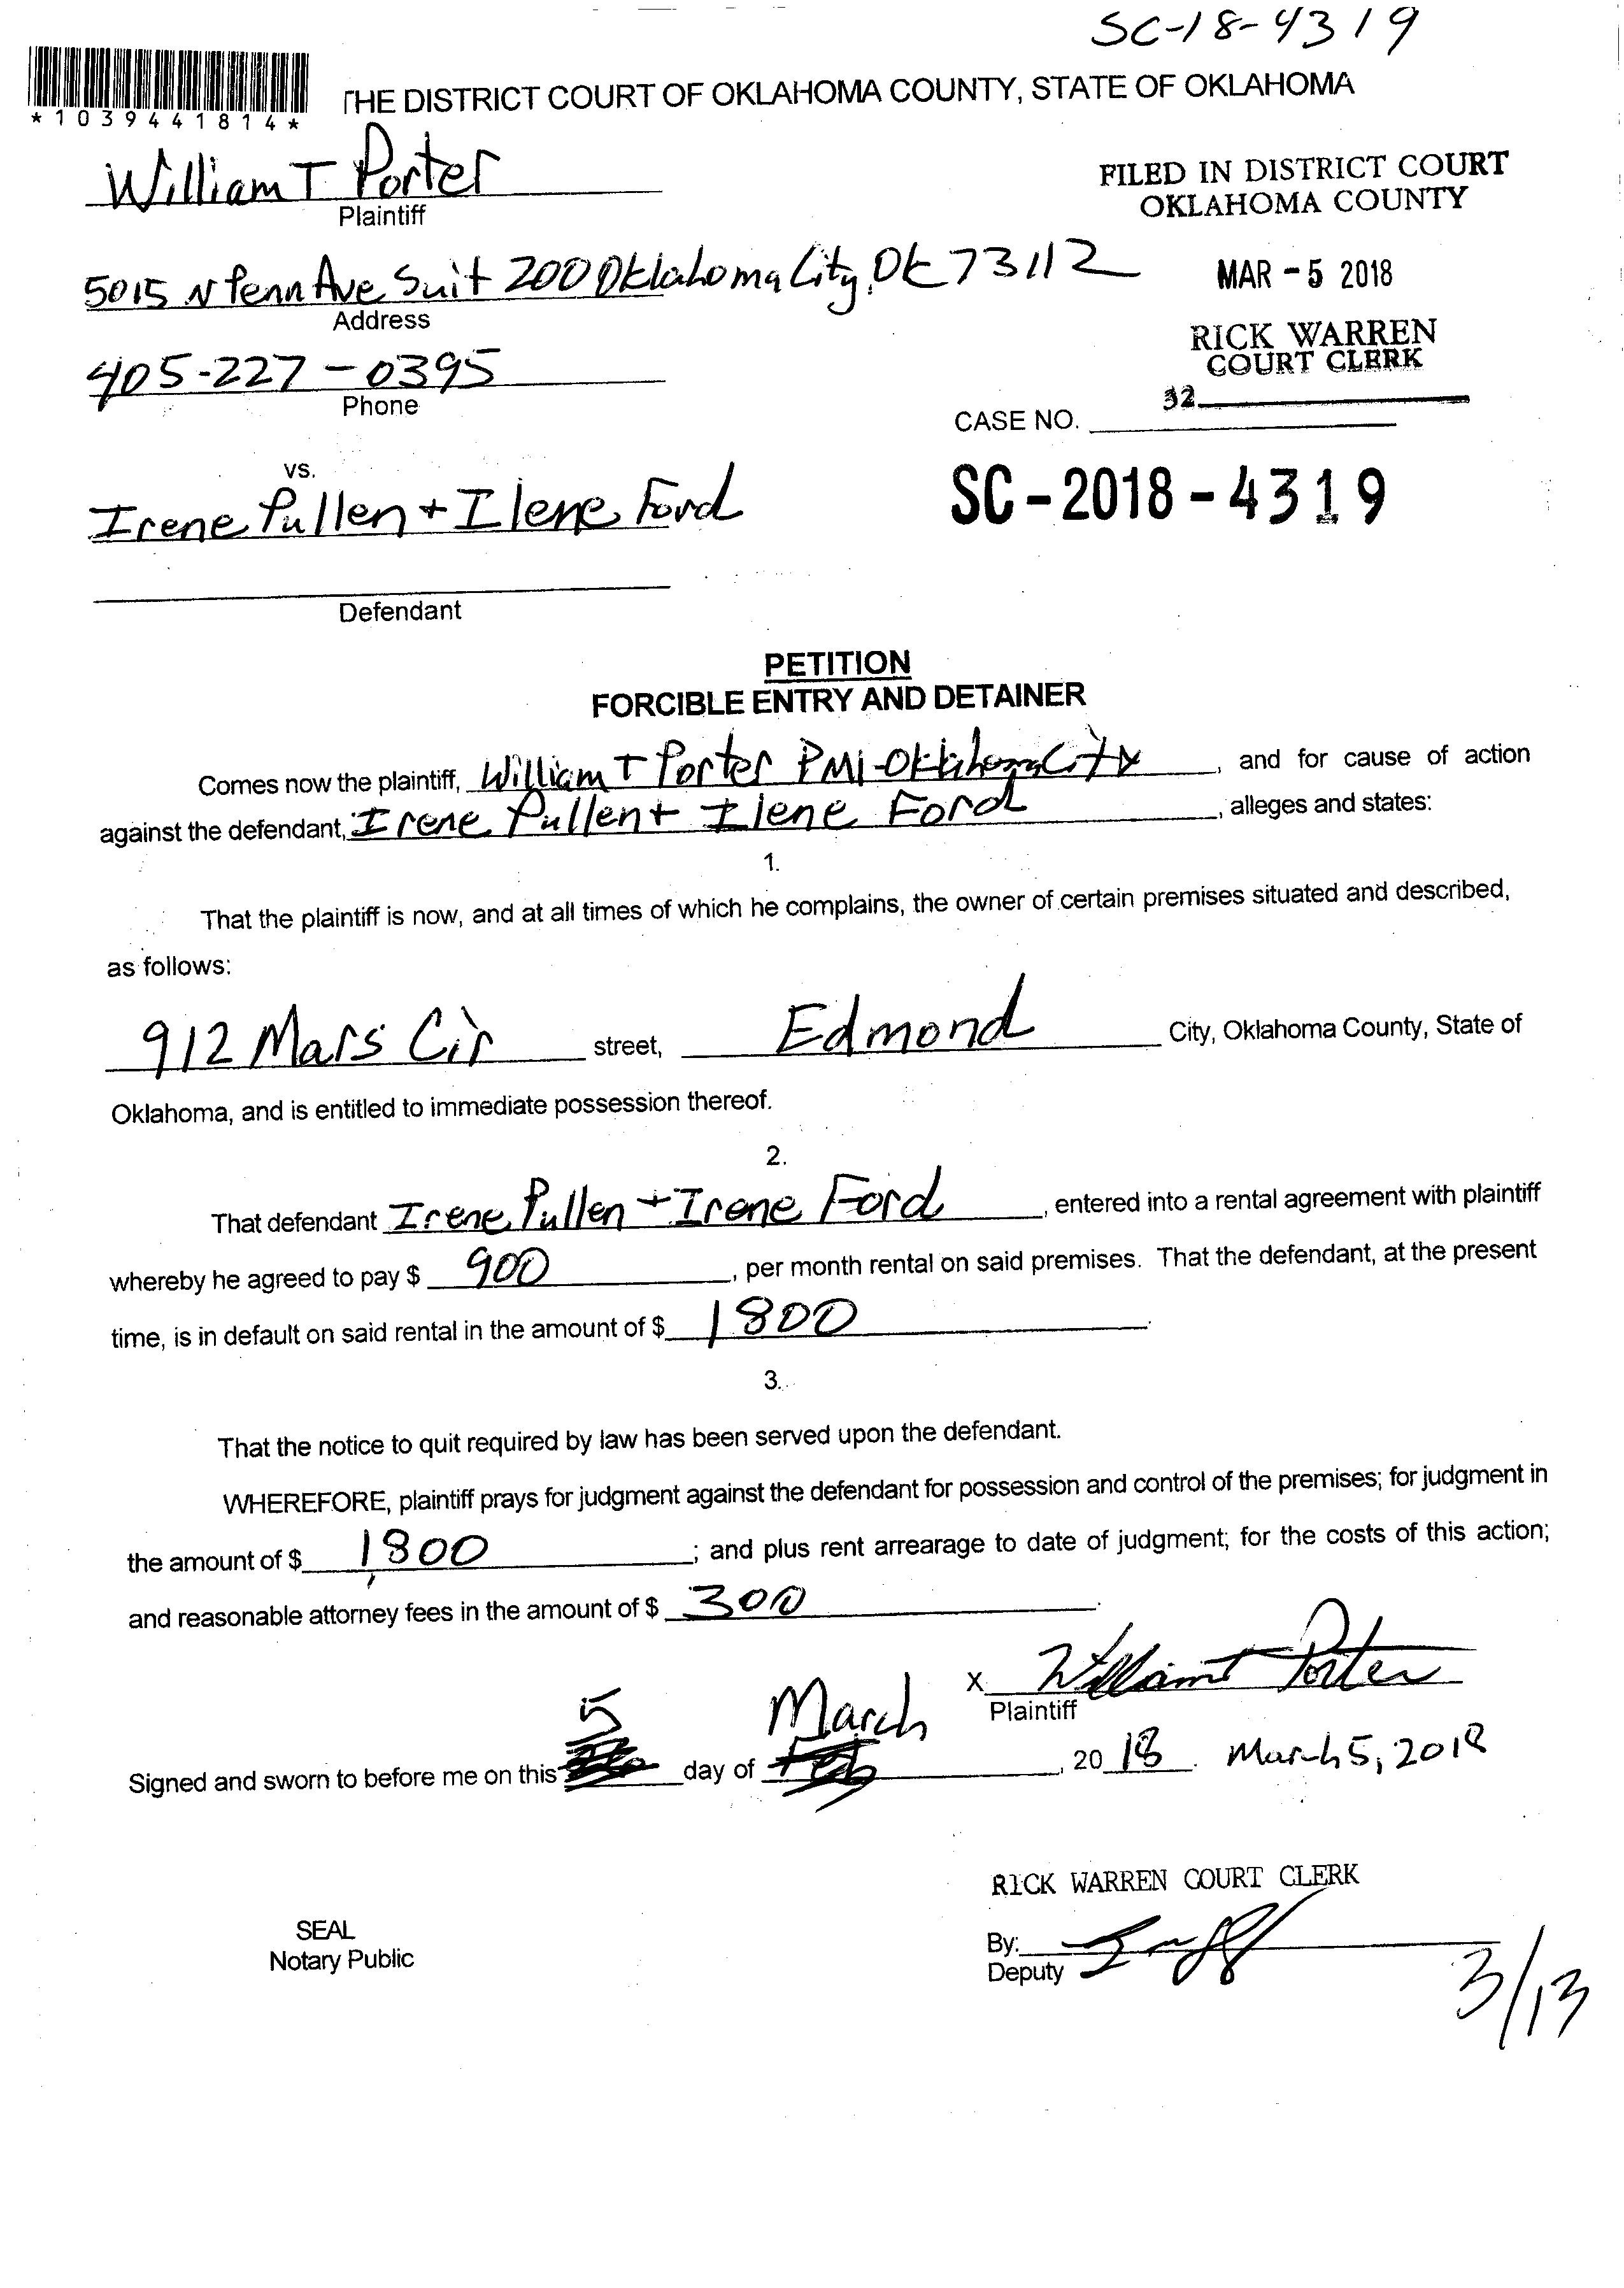 SC-18-4319
*1039441814*
THE DISTRICT COURT OF OKLAHOMA COUNTY, STATE OF OKLAHOMA
William T Porter
Plaintiff
FILED IN DISTRICT COURT
OKLAHOMA COUNTY
5015 N Penn Ave Suit 200 Oklahoma City, OK 73112
Address
MAR - 5 2018
405-227-0395
Phone
RICK WARREN
COURT CLERK
32
CASE NO.
vs.
Irene Pullen + Ilene Ford
SC-2018-4319
Defendant
PETITION
FORCIBLE ENTRY AND DETAINER
Comes now the plaintiff, William T Porter PMI-Oklahoma City, and for cause of action
against the defendant, Irene Pullen + Ilene Ford, alleges and states:
1.
That the plaintiff is now, and at all times of which he complains, the owner of certain premises situated and described,
as follows:
912 Mars Cir street, Edmond City, Oklahoma County, State of
Oklahoma, and is entitled to immediate possession thereof.
2.
That defendant Irene Pullen + Irene Ford, entered into a rental agreement with plaintiff
whereby he agreed to pay $ 900, per month rental on said premises. That the defendant, at the present
time, is in default on said rental in the amount of $ 1800.
3.
That the notice to quit required by law has been served upon the defendant.
WHEREFORE, plaintiff prays for judgment against the defendant for possession and control of the premises; for judgment in
the amount of $ 1,800; and plus rent arrearage to date of judgment; for the costs of this action;
and reasonable attorney fees in the amount of $ 300.
x William T Porter
Plaintiff
Signed and sworn to before me on this 5 day of March, 2018. March 5, 2018
RICK WARREN COURT CLERK
SEAL
Notary Public
By:
Deputy
3/13